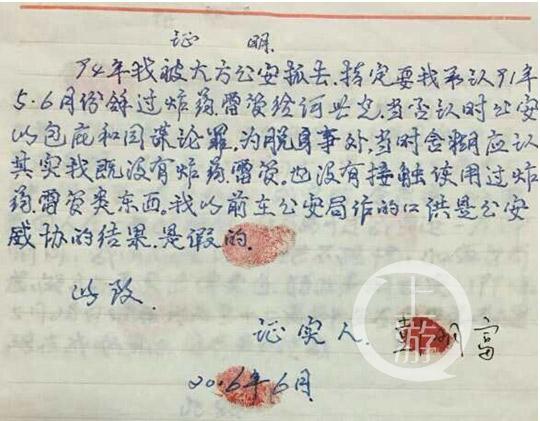 证 明
94年我被大方公安抓去,指定要我承认91年
5.6月份给过炸药.雷管给何世先,当否认时公安
以包庇和同谋论罪,为脱身事外,当时含糊应认
其实我既没有炸药.雷管.也没有接触使用过炸
药.雷管类东西。我以前在公安局作的口供是公安
威协的结果.是假的.
此致.
证实人. 明富
2016年6月.
上游